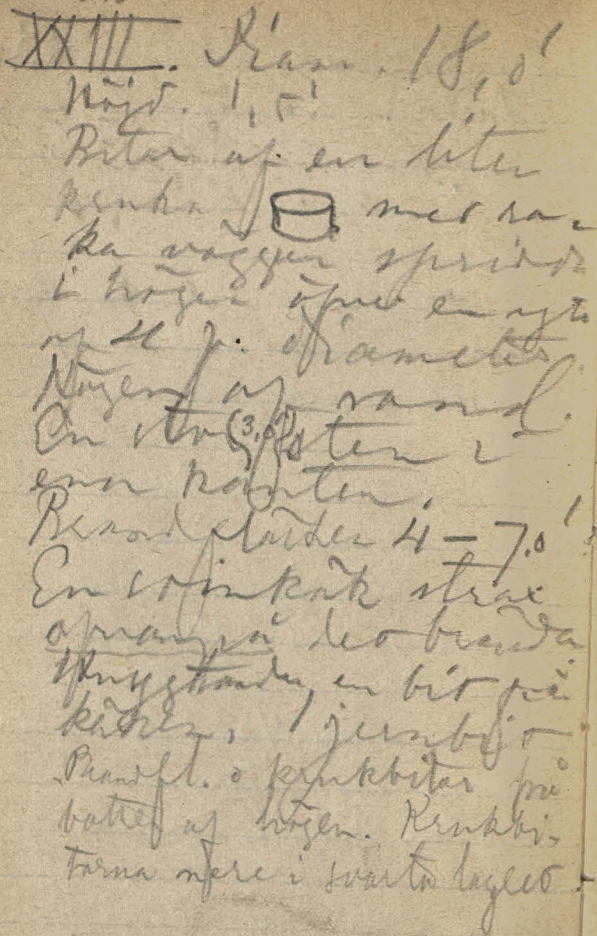 XXIII. Diam. 18,0'
Höjd. 1,5'
Bitar af en liten
kruka med ra-
ka väggar spridda
i högen öfver en yta
af 4 f. diameter.
Högen af rand.
En stor (3,0') sten i
ena kanten.
Brandfläcken 4 – 7,0'
En svinkäk strax
ofvanpå des brända
en bit på
kåken, jernbit
Brandfl. o krukbitar på
botten af högen. Krukbi-
tarna nere i svarta lagret.